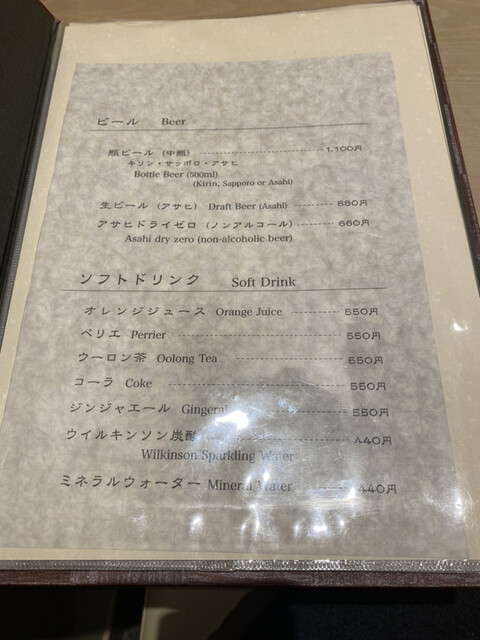 ビール Beer
瓶ビール (中瓶) 1,100円
キリン・サッポロ・アサヒ
Bottle Beer (500ml)
(Kirin, Sapporo or Asahi)
生ビール (アサヒ) Draft Beer (Asahi) 880円
アサヒドライゼロ (ノンアルコール) 660円
Asahi dry zero (non-alcoholic beer)
ソフトドリンク Soft Drink
オレンジジュース Orange Juice 550円
ペリエ Perrier 550円
ウーロン茶 Oolong Tea 550円
コーラ Coke 550円
ジンジャエール 550円
ウイルキンソン炭酸 440円
Wilkinson Sparkling Water
ミネラルウォーター Mineral Water 440円